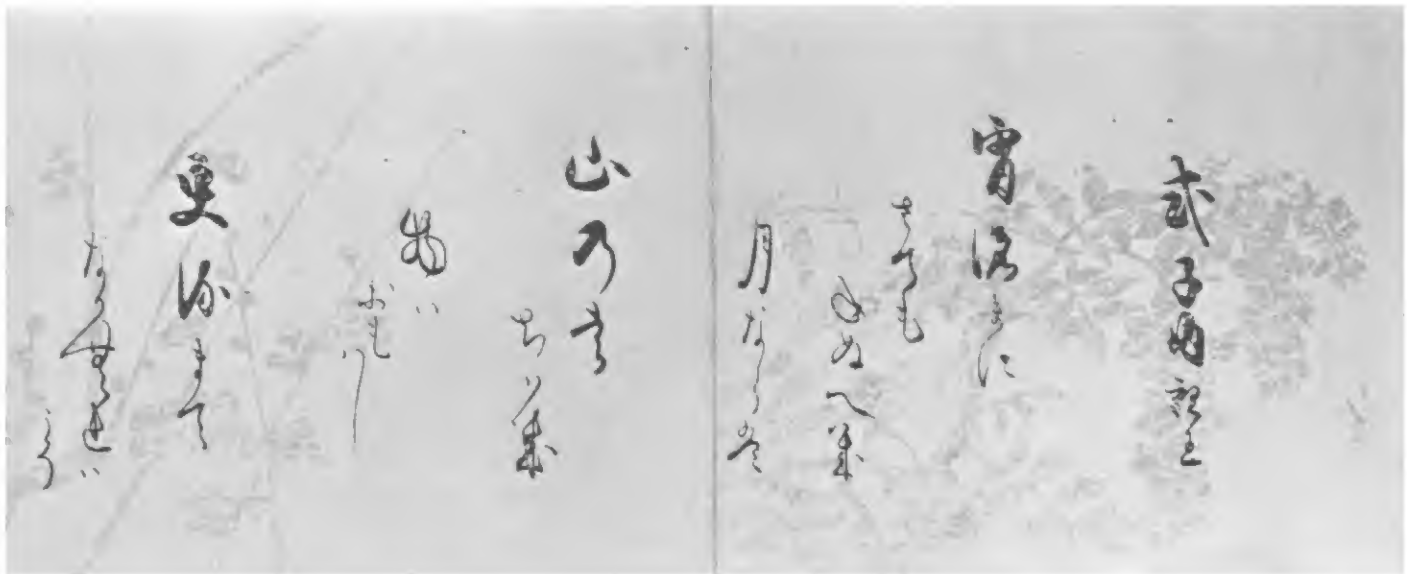 式子内親王
宵のまに
さても
ねぬへき
月ならは
山のは
ちかき
物ハ
おもハし
更るまて
なかむれハ
こそ